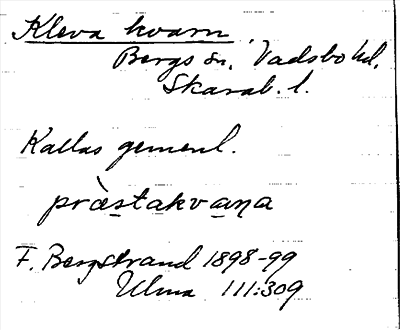 Kleva kvarn
Bergs sn, Vadsbo hd,
Skarab. l.
Kallas gemenl.
præ̀stakvaṇa
F. Bergstrand 1898-99
Ulma 111:309